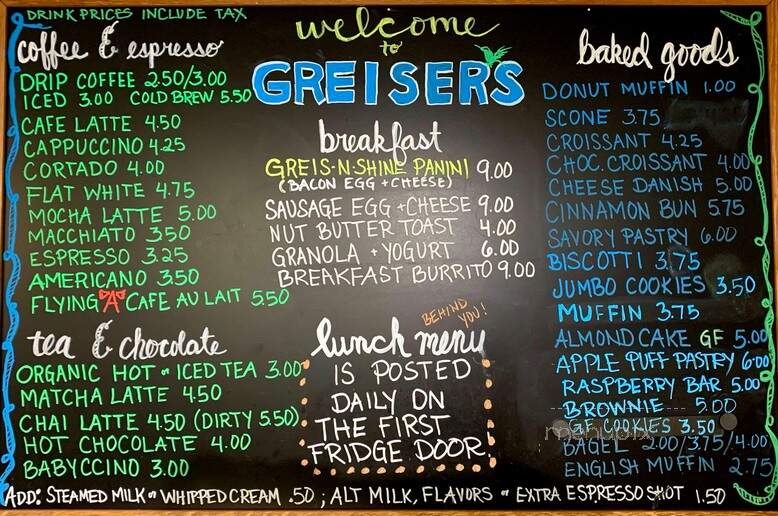 DRINK PRICES INCLUDE TAX
coffee & espresso
DRIP COFFEE 2.50/3.00
ICED 3.00 COLD BREW 5.50
CAFE LATTE 4.50
CAPPUCCINO 4.25
CORTADO 4.00
FLAT WHITE 4.75
MOCHA LATTE 5.00
MACCHIATO 3.50
ESPRESSO 3.25
AMERICANO 3.50
FLYING "A" CAFE AU LAIT 5.50
tea & chocolate
ORGANIC HOT or ICED TEA 3.00
MATCHA LATTE 4.50
CHAI LATTE 4.50 (DIRTY 5.50)
HOT CHOCOLATE 4.00
BABYCCINO 3.00
welcome
to
GREISER'S
breakfast
GREIS-N-SHINE PANINI 9.00
(BACON EGG + CHEESE)
SAUSAGE EGG + CHEESE 9.00
NUT BUTTER TOAST 4.00
GRANOLA + YOGURT 6.00
BREAKFAST BURRITO 9.00
BEHIND YOU!
lunch menu
IS POSTED
DAILY ON
THE FIRST
FRIDGE DOOR.
baked goods
DONUT MUFFIN 1.00
SCONE 3.75
CROISSANT 4.25
CHOC. CROISSANT 4.00
CHEESE DANISH 5.00
CINNAMON BUN 5.75
SAVORY PASTRY 6.00
BISCOTTI 3.75
JUMBO COOKIES 3.50
MUFFIN 3.75
ALMOND CAKE GF 5.00
APPLE PUFF PASTRY 6.00
RASPBERRY BAR 5.00
BROWNIE 5.00
GF COOKIES 3.50
menupix
BAGEL 2.00/3.75/4.00
ENGLISH MUFFIN 2.75
ADD: STEAMED MILK or WHIPPED CREAM .50 ; ALT MILK, FLAVORS or EXTRA ESPRESSO SHOT 1.50